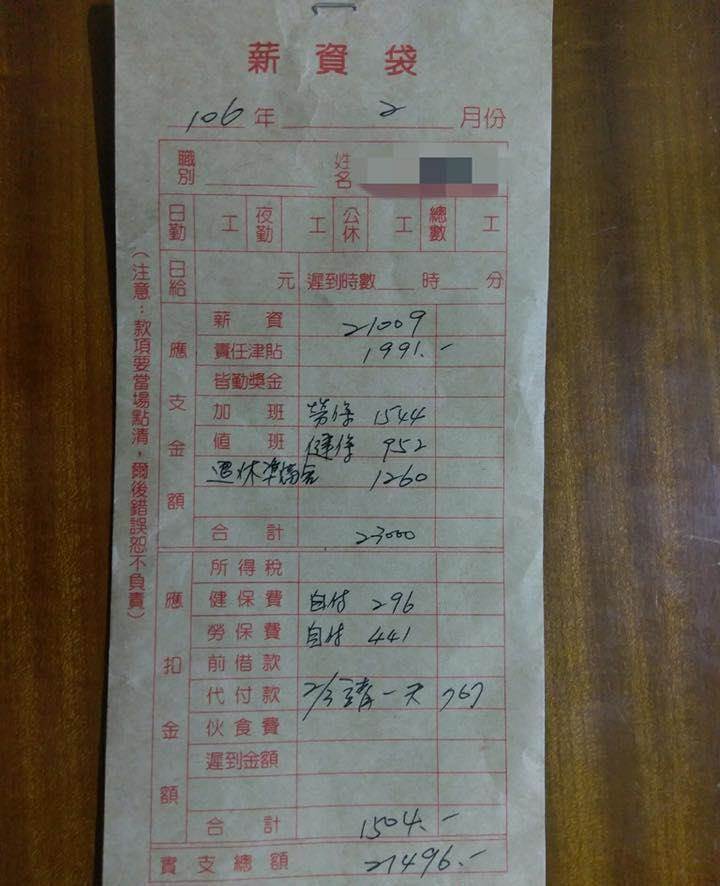 薪資袋
106年 2 月份
職別 姓名
日勤 工 夜勤 工 公休 工 總數 工
日給 元 遲到時數 時 分
應支金額
薪資 21009
責任津貼 1991.-
皆勤獎金
加班 勞保 1544
值班 健保 952
退休準備金 1260
合計 23000
應扣金額
所得稅
健保費 自付 296
勞保費 自付 441
前借款
代付款 2/3 請一天 767
伙食費
遲到金額
合計 1504.-
實支總額 21496.-
(注意：款項要當場點清，爾後錯誤恕不負責)